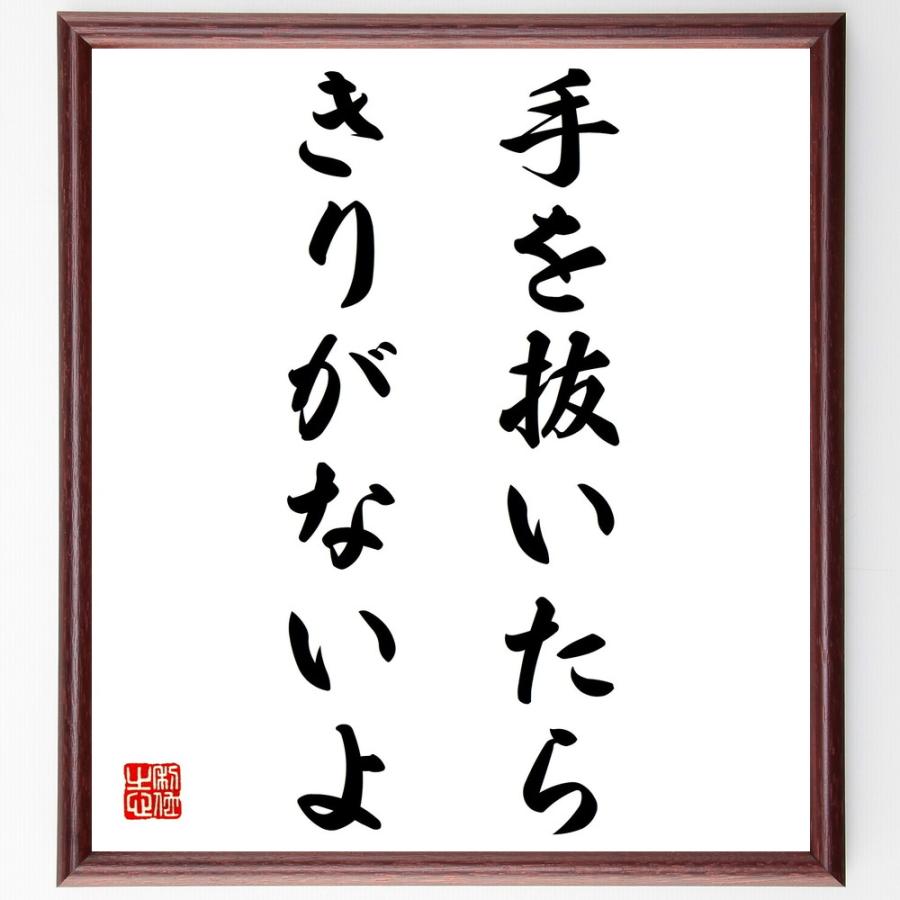 手を抜いたら
きりがないよ